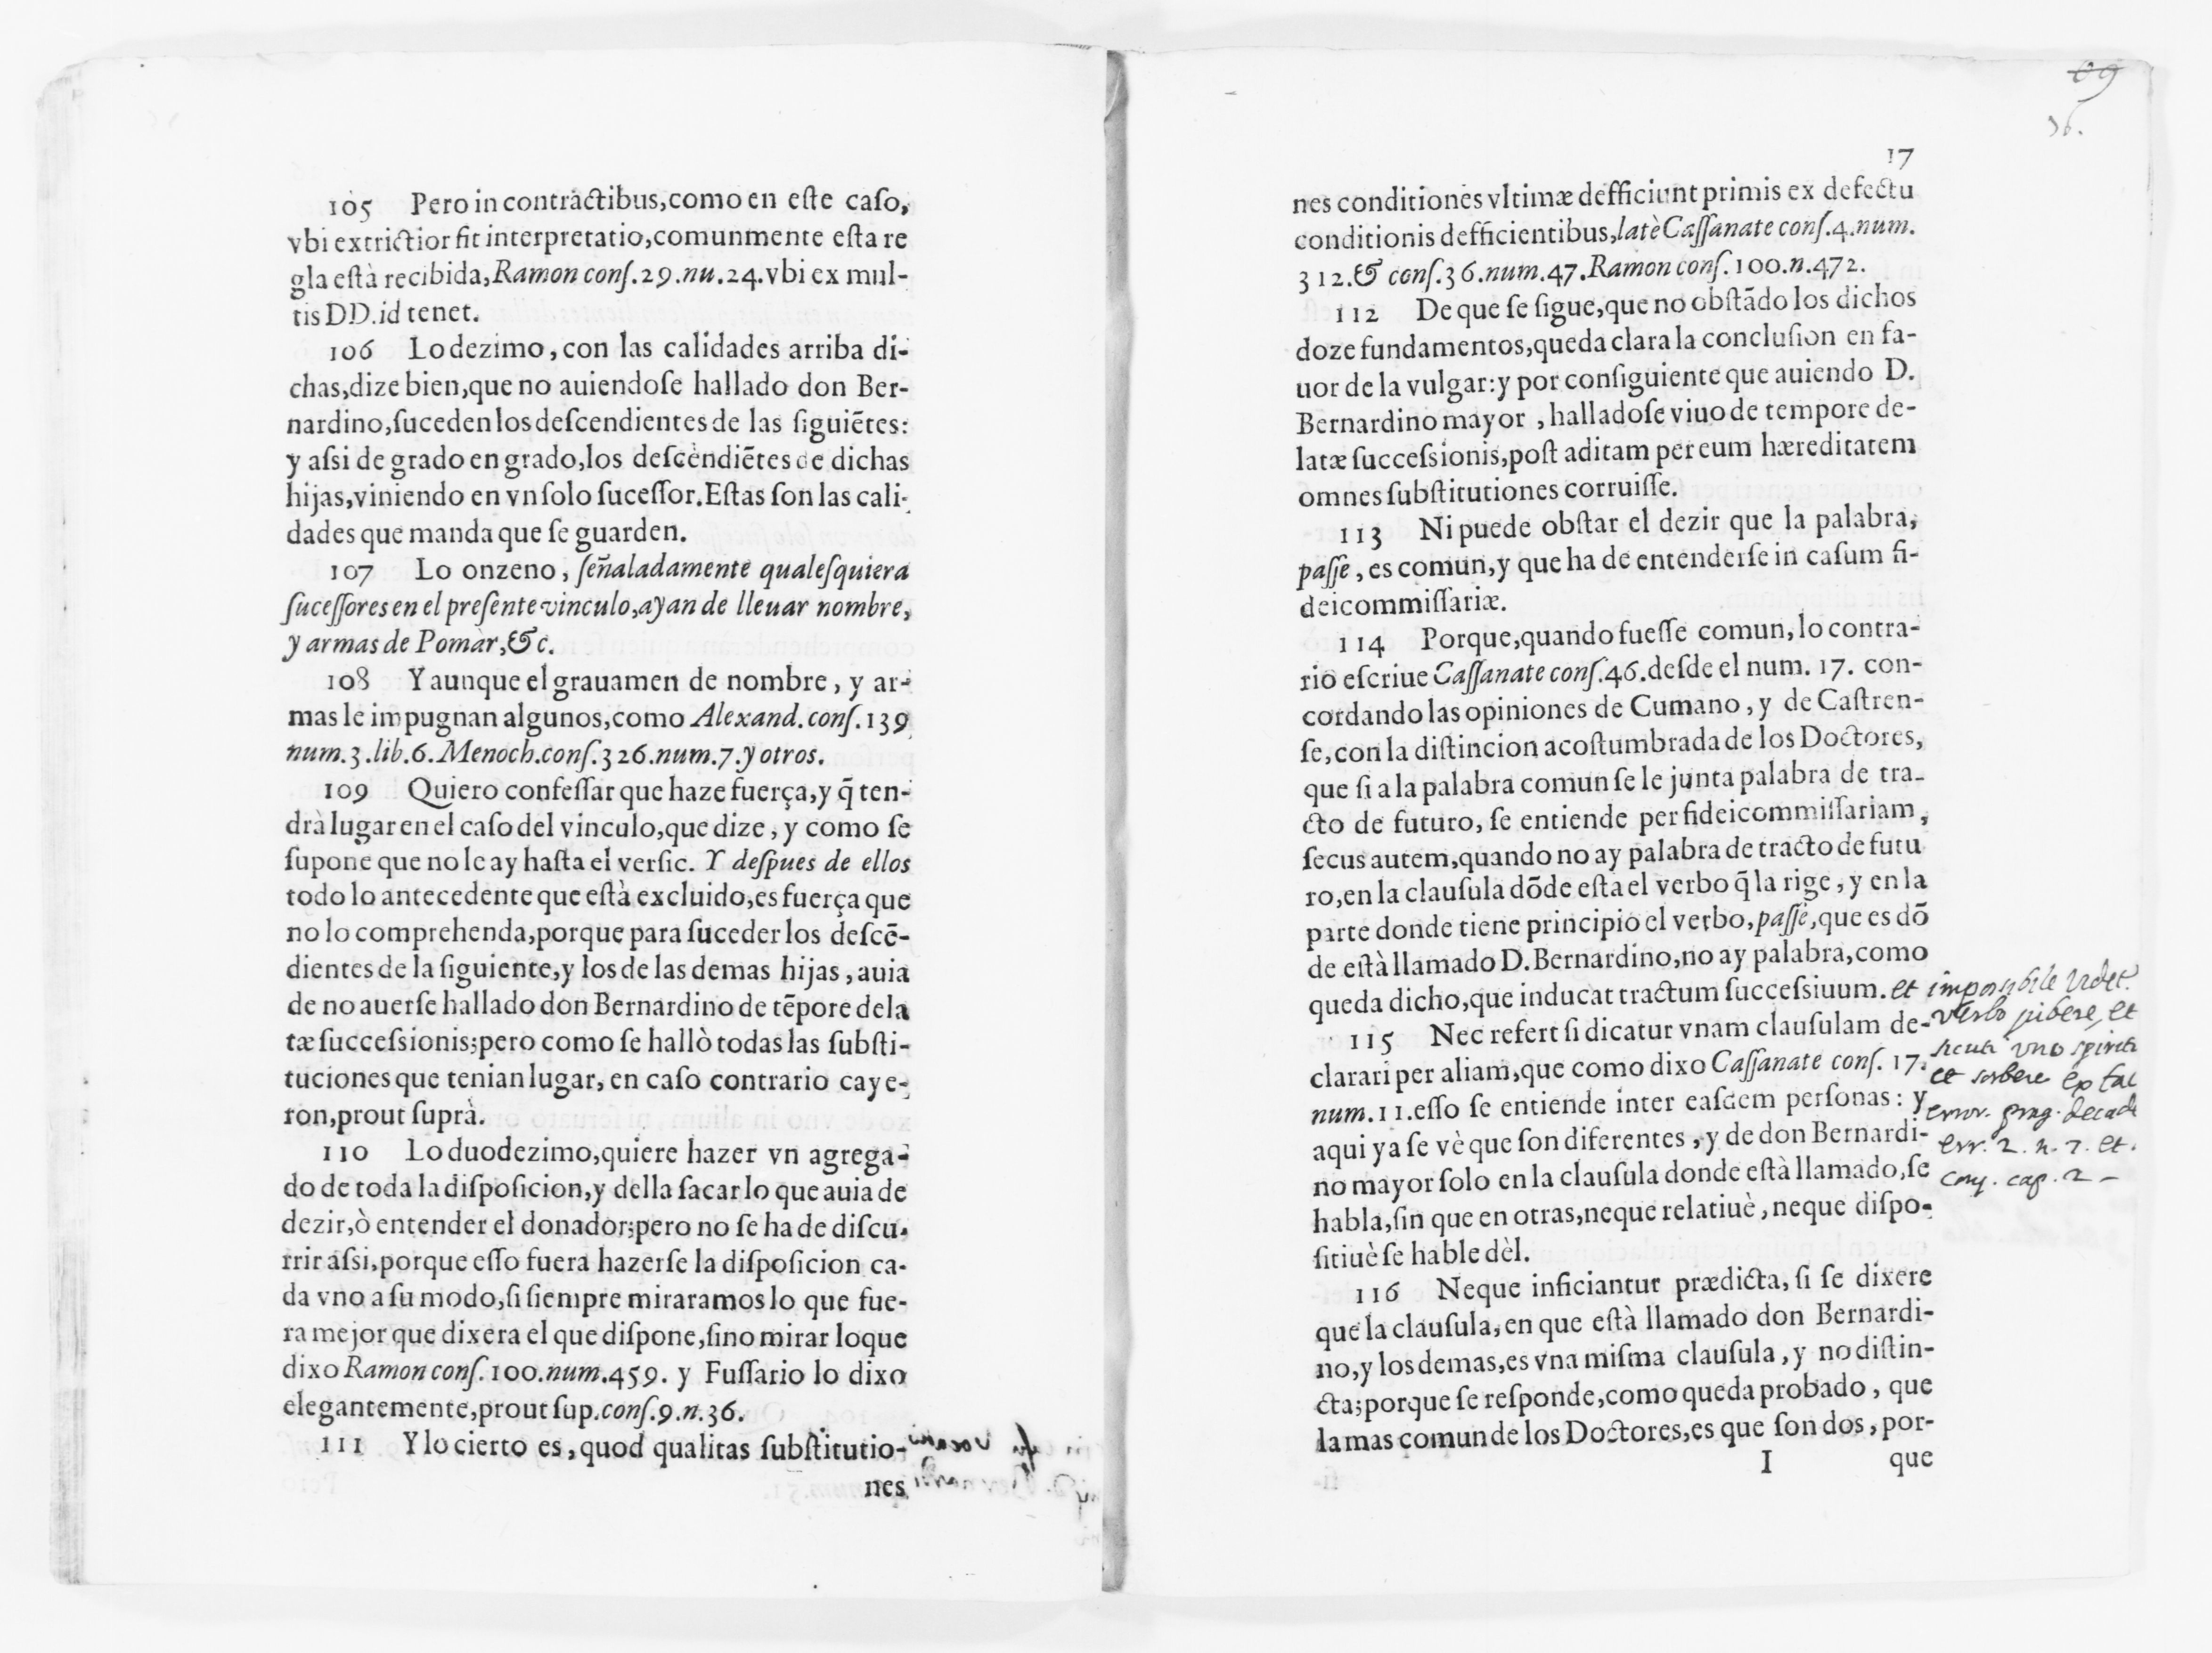 105 Pero in contractibus, como en eſte caſo,
vbi extrictior fit interpretatio, comunmente eſta re
gla eſtà recibida, Ramon conſ. 29. nu. 24. vbi ex mul-
tis DD. id tenet.
106 Lo dezimo, con las calidades arriba di-
chas, dize bien, que no auiendoſe hallado don Ber-
nardino, ſuceden los deſcendientes de las ſiguiẽtes:
y aſsi de grado en grado, los deſcendiẽtes de dichas
hijas, viniendo en vn ſolo ſuceſſor. Eſtas ſon las cali-
dades que manda que ſe guarden.
107 Lo onzeno, ſeñaladamente qualeſquiera
ſuceſſores en el preſente vinculo, ayan de lleuar nombre,
y armas de Pomar, & c.
108 Y aunque el grauamen de nombre, y ar-
mas le impugnan algunos, como Alexand. conſ. 139
num. 3. lib. 6. Menoch. conſ. 326. num. 7. y otros.
109 Quiero confeſſar que haze fuerça, y q̃ ten-
drà lugar en el caſo del vinculo, que dize, y como ſe
ſupone que no le ay haſta el verſic. Y deſpues de ellos
todo lo antecedente que eſtà excluido, es fuerça que
no lo comprehenda, porque para ſuceder los deſcẽ-
dientes de la ſiguiente, y los de las demas hijas, auia
de no auerſe hallado don Bernardino de tẽpore dela
tæ ſucceſsionis; pero como ſe hallò todas las ſubſti-
tuciones que tenian lugar, en caſo contrario caye-
ron, prout ſuprà.
110 Lo duodezimo, quiere hazer vn agrega-
do de toda la diſpoſicion, y della ſacar lo que auia de
dezir, ò entender el donador; pero no ſe ha de diſcu-
rrir aſsi, porque eſſo fuera hazerſe la diſpoſicion ca-
da vno a ſu modo, ſi ſiempre miraramos lo que fue-
ra mejor que dixera el que diſpone, ſino mirar loque
dixo Ramon conſ. 100. num. 459. y Fuſſario lo dixo
elegantemente, prout ſup. conſ. 9. n. 36.
111 Y lo cierto es, quod qualitas ſubſtitutio-
nes
69
36.
17
nes conditiones vltimæ defficiunt primis ex defectu
conditionis defficientibus, latè Caſſanate conſ. 4. num.
312. & conſ. 36. num. 47. Ramon conſ. 100. n. 472.
112 De que ſe ſigue, que no obſtãdo los dichos
doze fundamentos, queda clara la concluſion en fa-
uor de la vulgar: y por conſiguiente que auiendo D.
Bernardino mayor, halladoſe viuo de tempore de-
latæ ſucceſsionis, poſt aditam per eum hæreditatem
omnes ſubſtitutiones corruiſſe.
113 Ni puede obſtar el dezir que la palabra,
paſſe, es comun, y que ha de entenderſe in caſum fi-
deicommiſſariæ.
114 Porque, quando fueſſe comun, lo contra-
rio eſcriue Caſſanate conſ. 46. deſde el num. 17. con-
cordando las opiniones de Cumano, y de Caſtren-
ſe, con la diſtincion acoſtumbrada de los Doctores,
que ſi a la palabra comun ſe le junta palabra de tra-
cto de futuro, ſe entiende per fideicommiſſariam,
ſecus autem, quando no ay palabra de tracto de futu
ro, en la clauſula dõde eſta el verbo q̃ la rige, y en la
parte donde tiene principio el verbo, paſſe, que es dõ
de eſtà llamado D. Bernardino, no ay palabra, como
queda dicho, que inducat tractum ſucceſsiuum. et impossibile
verbo et
115 Nec refert ſi dicatur vnam clauſulam de-
sicuti uno
clarari per aliam, que como dixo Caſſanate conſ. 17.
et sorbere
num. 11. eſſo ſe entiende inter eaſdem perſonas: y
error.
aqui ya ſe vè que ſon diferentes, y de don Bernardi-
err. 2. n. 7. et.
no mayor ſolo en la clauſula donde eſtà llamado, ſe
cap. 2
habla, ſin que en otras, neque relatiuè, neque diſpo-
ſitiuè ſe hable dèl.
116 Neque inficiantur prædicta, ſi ſe dixere
que la clauſula, en que eſtà llamado don Bernardi-
no, y los demas, es vna miſma clauſula, y no diſtin-
cta; porque ſe reſponde, como queda probado, que
la mas comun de los Doctores, es que ſon dos, por-
I que